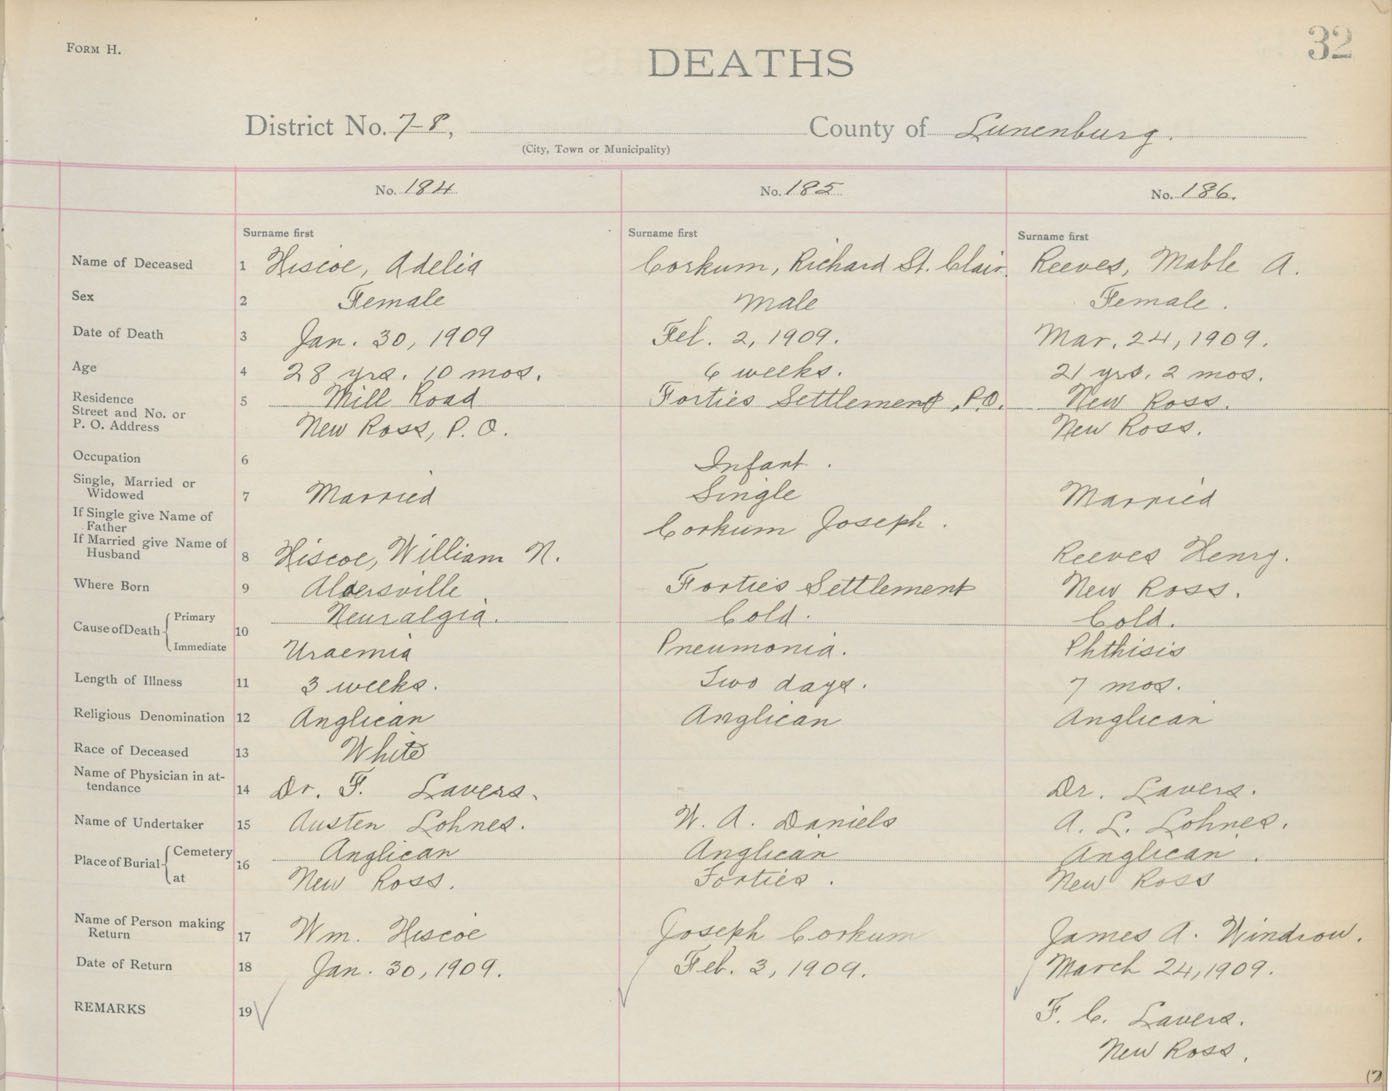 FORM H.
32
DEATHS
District No. 7-8, County of Lunenburg.
(City, Town or Municipality)
No. 184 No. 185 No. 186.
Surname first Surname first Surname first
Name of Deceased 1 Hiscoe, Adelia Corkum, Richard St. Clair. Reeves, Mable A.
Sex 2 Female Male Female.
Date of Death 3 Jan. 30, 1909 Feb. 2, 1909. Mar. 24, 1909.
Age 4 28 yrs. 10 mos. 6 weeks. 21 yrs. 2 mos.
Residence 5 Mill Road Forties Settlement, P.O. New Ross.
Street and No. or
P. O. Address New Ross, P. O. New Ross.
Occupation 6 Infant.
Single, Married or
Widowed 7 Married Single Married
If Single give Name of
Father Corkum Joseph.
If Married give Name of
Husband 8 Hiscoe, William N. Reeves Henry.
Where Born 9 Aldersville Forties Settlement New Ross.
Cause of Death 10 Primary Neuralgia. Cold. Cold.
Immediate Uraemia Pneumonia. Phthisis
Length of Illness 11 3 weeks. Two days. 7 mos.
Religious Denomination 12 Anglican Anglican Anglican
Race of Deceased 13 White
Name of Physician in at-
tendance 14 Dr. F. Lavers. Dr. Lavers.
Name of Undertaker 15 Austen Lohnes. W. A. Daniels A. L. Lohnes.
Place of Burial 16 Cemetery Anglican Anglican Anglican.
at New Ross. Forties. New Ross
Name of Person making
Return 17 Wm. Hiscoe Joseph Corkum James A. Windrow.
Date of Return 18 Jan. 30, 1909. Feb. 3, 1909. March 24, 1909.
REMARKS 19 F. C. Lavers.
New Ross.